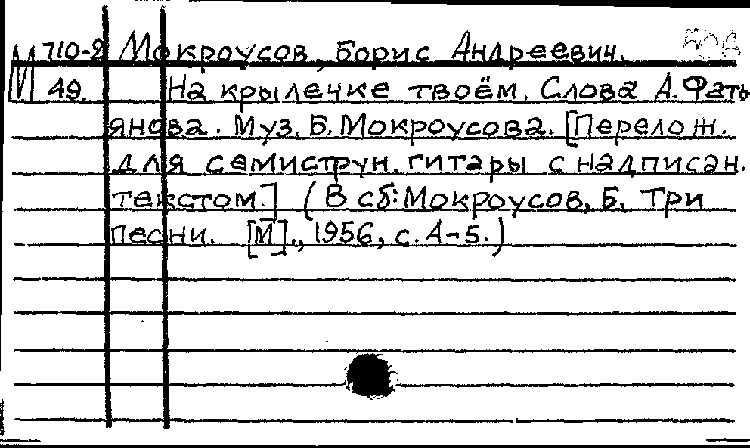 М 710-2 Мокроусов, Борис Андреевич.
49. На крылечке твоём. Слова А. Фать
янова. Муз. Б. Мокроусова. [Перелож.
для семиструн. гитары с надписан.
текстом.] (В сб: Мокроусов, Б. Три
песни. [М]., 1956, с. 4-5.)